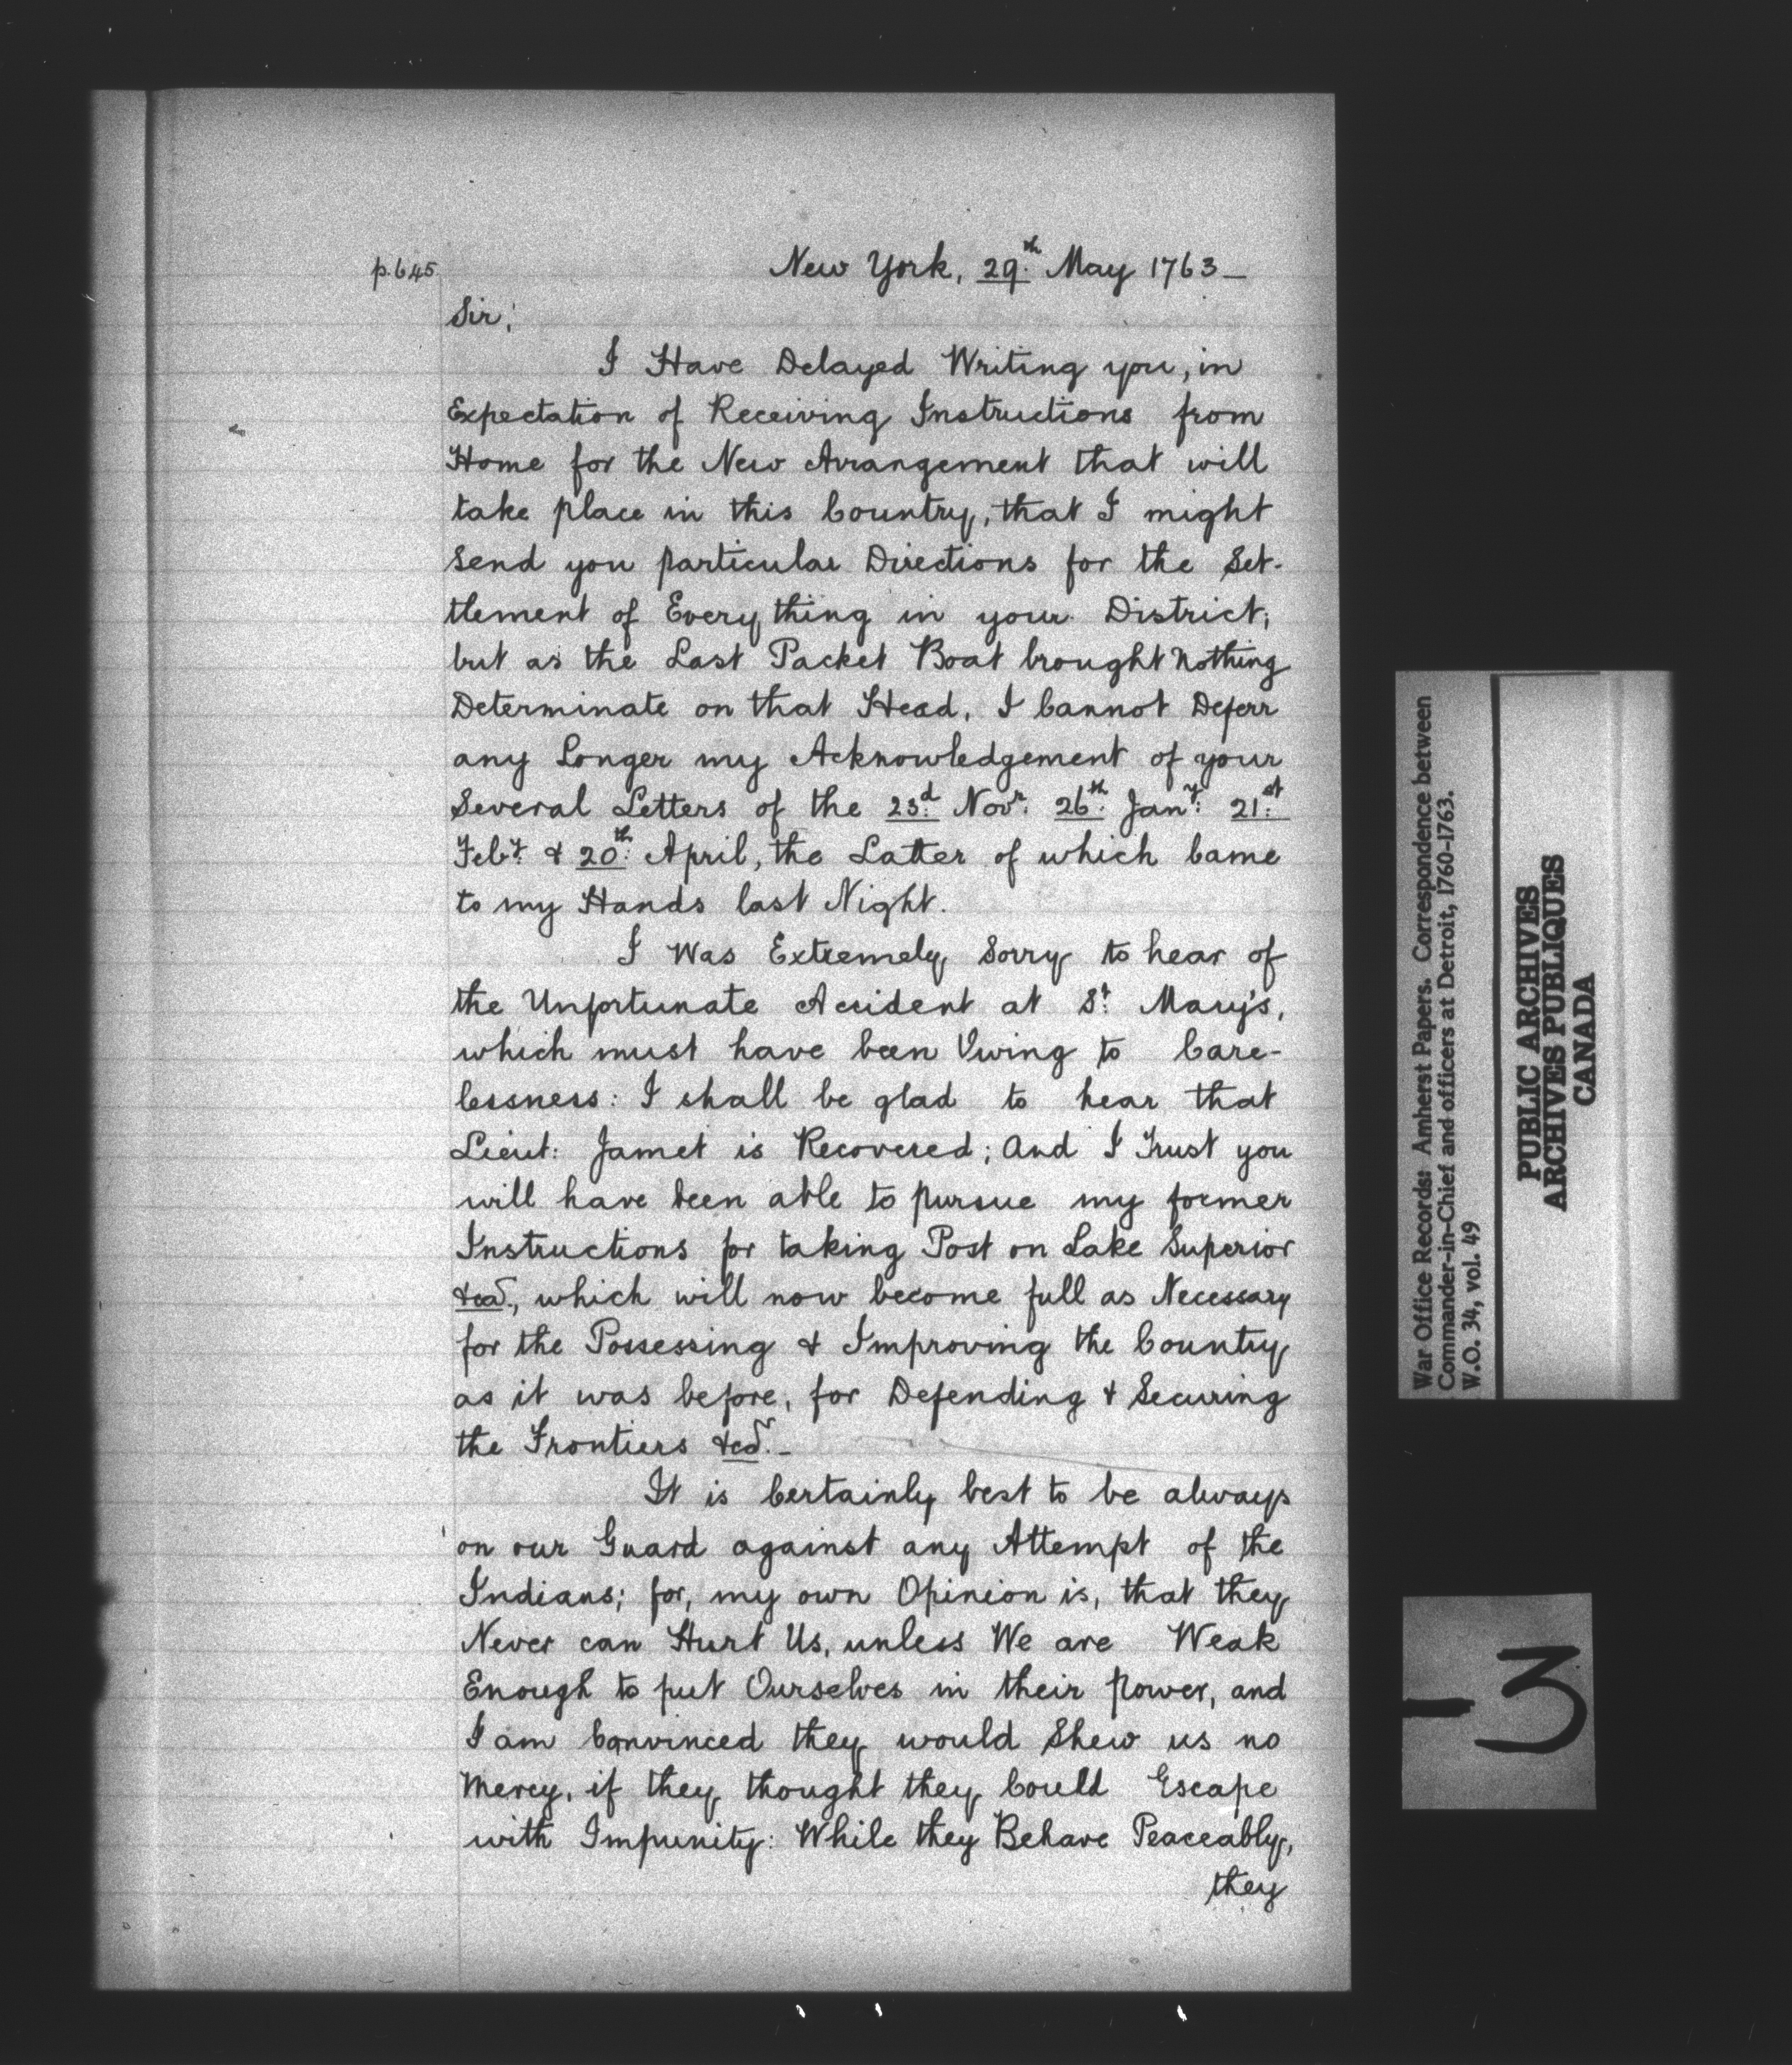 p. 645
New York, 29th May 1763 —
Sir,
I Have Delayed Writing you, in
Expectation of Receiving Instructions from
Home for the New Arrangement that will
take place in this Country, that I might
send you particular Directions for the Set-
tlement of Every thing in your District;
but as the Last Packet Boat brought Nothing
Determinate on that Head, I Cannot Deferr
any Longer my Acknowledgement of your
Several Letters of the 23d Novr. 26th Jany. 21st
Feby. & 20th April, the Latter of which Came
to my Hands last Night.
I Was Extremely Sorry to hear of
the Unfortunate Accident at St. Mary's,
which must have been Owing to Care-
lessness: I shall be glad to hear that
Lieut: Jamet is Recovered; And I Trust you
will have been able to pursue my former
Instructions for taking Post on Lake Superior
&ca., which will now become full as Necessary
for the Possessing & Improving the Country,
as it was before, for Defending & Securing
the Frontiers &ca. -
It is Certainly best to be always
on our Guard against any Attempt of the
Indians; for, my own Opinion is, that they
Never can Hurt Us, unless We are Weak
Enough to put Ourselves in their power, and
I am Convinced they would Shew us no
Mercy, if they thought they Could Escape
with Impunity: While they Behave Peaceably,
they
War Office Records: Amherst Papers. Correspondence between
Commander-in-Chief and officers at Detroit, 1760-1763.
W.O. 34, vol. 49
PUBLIC ARCHIVES
ARCHIVES PUBLIQUES
CANADA
-3